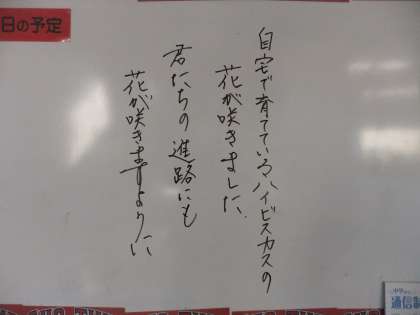 日の予定
自宅で育てているハイビスカスの
花が咲きました。
君たちの進路にも
花が咲きますように
通信制